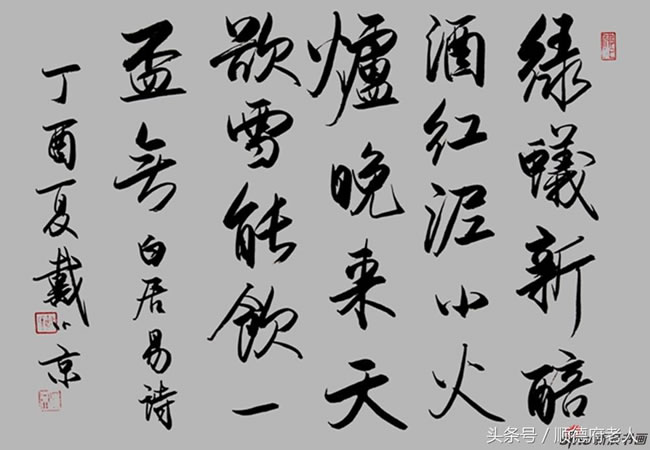 綠蟻新醅
酒紅泥小火
爐晚来天
欲雪能飲一
盃無 白居易詩
丁酉夏戴小京
头条号 / 顺德府老人